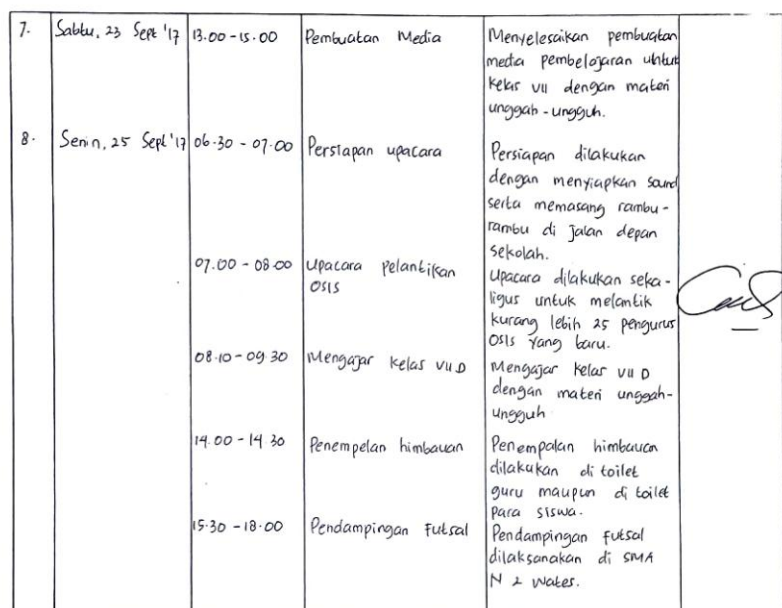 7. Sabtu, 23 Sept '17 13.00 - 15.00 Pembuatan Media Menyelesaikan pembuatan
media pembelajaran untuk
kelas VII dengan materi
unggah - ungguh.
8. Senin, 25 Sept '17 06.30 - 07.00 Persiapan upacara Persiapan dilakukan
dengan menyiapkan sound
serta memasang rambu-
rambu di jalan depan
sekolah.
07.00 - 08.00 Upacara Pelantikan Upacara dilakukan seka-
OSIS ligus untuk melantik
kurang lebih 25 pengurus
OSIS yang baru.
08.10 - 09.30 Mengajar kelas VII D Mengajar kelas VII D
dengan materi unggah-
ungguh
14.00 - 14.30 Penempelan himbauan Penempalan himbauan
dilakukan di toilet
guru maupun di toilet
para siswa.
15.30 - 18.00 Pendampingan Futsal Pendampingan futsal
dilaksanakan di SMA
N 2 Wates.